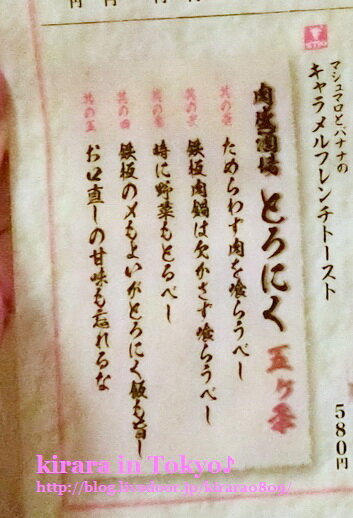 マシュマロとバナナの
キャラメルフレンチトースト
580円
肉盛酒場 とろにく 五ヶ条
其の壱 ためらわず肉を喰らうべし
其の弐 鉄板肉鍋は欠かさず喰らうべし
其の参 時に野菜もとるべし
其の四 鉄板の〆もよいがとろにく飯も旨し
其の五 お口直しの甘味も忘れるな
kirara in Tokyo♪
http://blog.livedoor.jp/kirara0809/